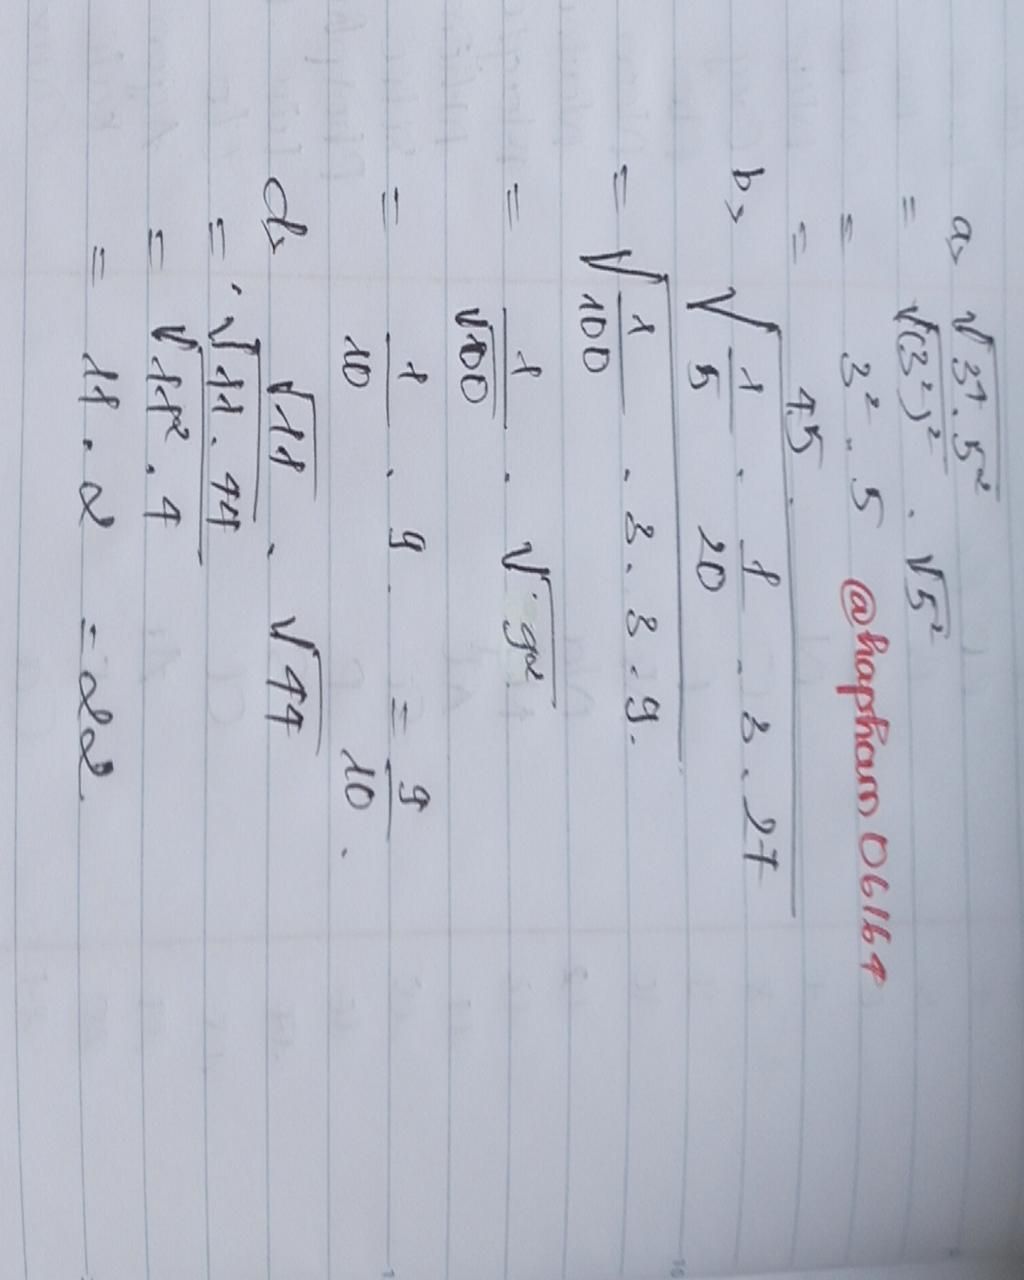 a> √3⁴.5²
= √(3²)² . √5²
= 3² . 5 @hapham06164
= 45.
b> √1/5 . 1/20 . 3 . 27
= √1/100 . 3 . 3 . 9.
= 1/√100 . √9²
= 1/10 . 9 . = 9/10 .
d> √11 . √44
= √11 . 44
= √11² . 4
= 11 . 2 = 22.